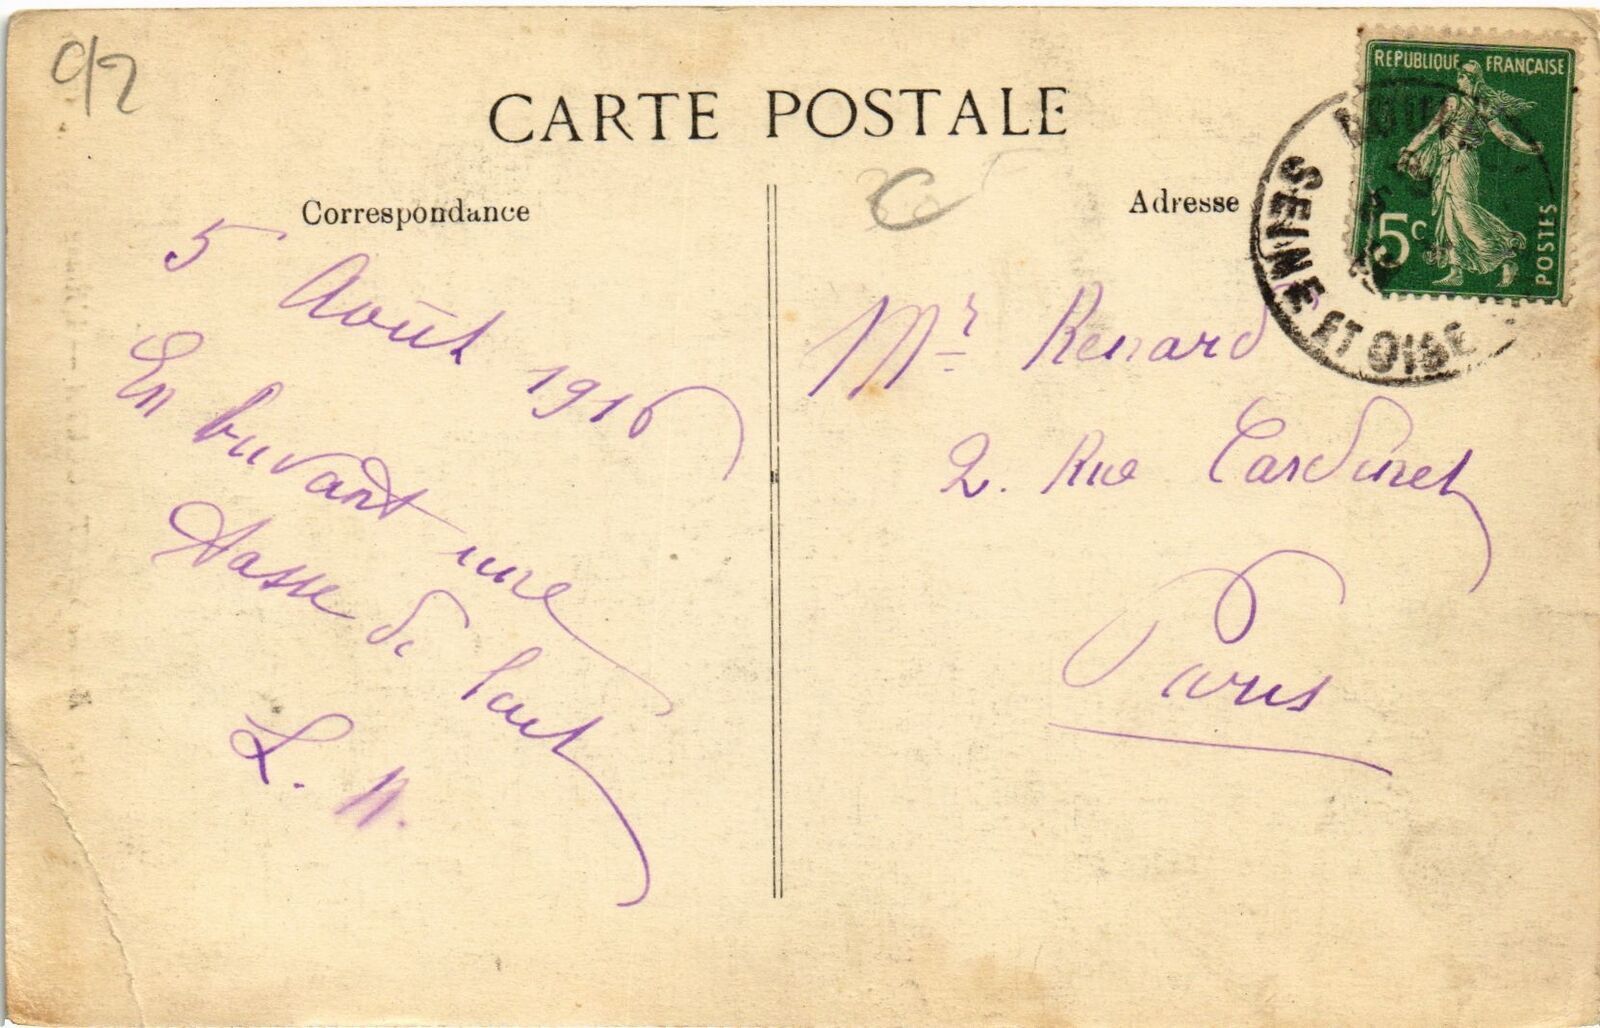 9/2
CARTE POSTALE
Correspondance
5 Août 1916
En buvant une
tasse de lait
L. N.
Adresse
Mr Renard
2. Rue Cardinet
Paris
REPUBLIQUE FRANÇAISE
5c
POSTES
SEINE ET OISE